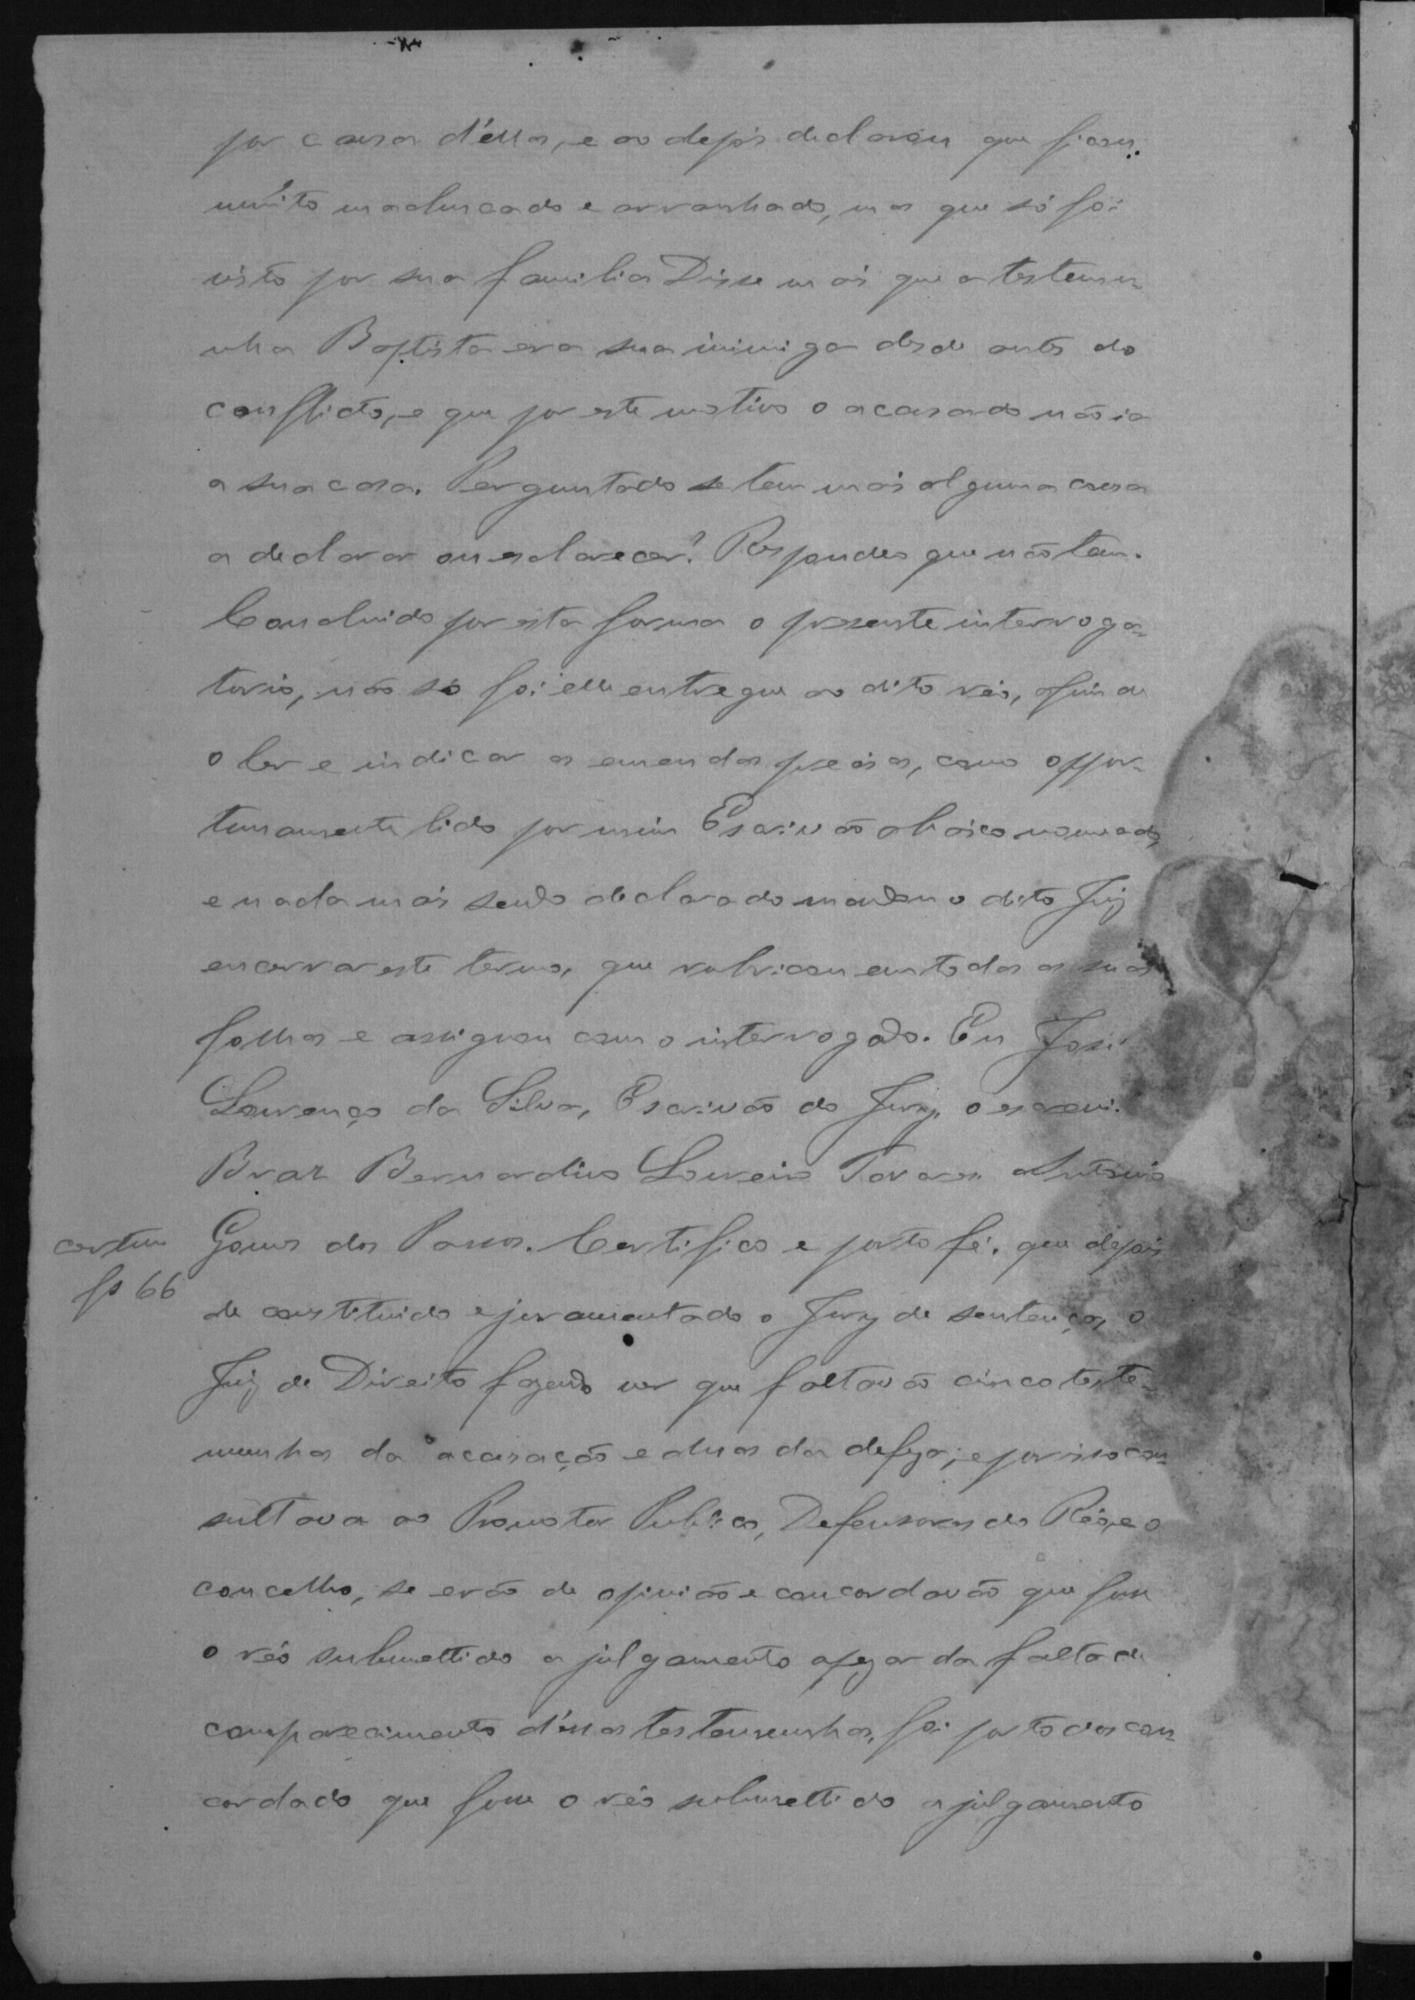 por causa d'élla, e ao depois declarou que ficou
muito machucado e arranhado, mas que só foi
visto por sua familia Disse mais que a testemu-
nha Baptista era sua inimiga desde antes do
conflicto, e que por este motivo o accusado não ia
a sua casa. Perguntado se tem mais alguma cousa
a declarar ou esclarecer? Respondeo que não tem.
Concluido por esta forma o presente interroga-
torio, não só foi elle entregue ao dito réo, afim de
o ler e indicar as emendas precisas, como oppor-
tunamente lido por mim Escrivão abaixo nomeado,
e nada mais sendo declarado mandou o dito Juiz
encerrar este termo, que rubricou em todas as suas
folhas e assignou com o interrogado. Eu José
Lourenço da Silva, Escrivão do Jury, o escrevi.
Braz Bernardino Loureiro Tavares. Antonio
Certim Gomes dos Passos. Certifico e porto fé, que depois
fs 66
de constituido e juramentado o Jury de sentença, o
Juiz de Direito fazendo ver que faltavão cinco teste-
munhas da accusação e duas da defeza; e por isso con-
sultava ao Promotor Publico, Defensores do Réo, e o
concelho, se erão de opinião e concordavão que fosse
o réo submettido a julgamento apezar da falta de
comparecimento d'essas testemunhas, foi por todos con-
cordado que fosse o réo submettido a julgamento